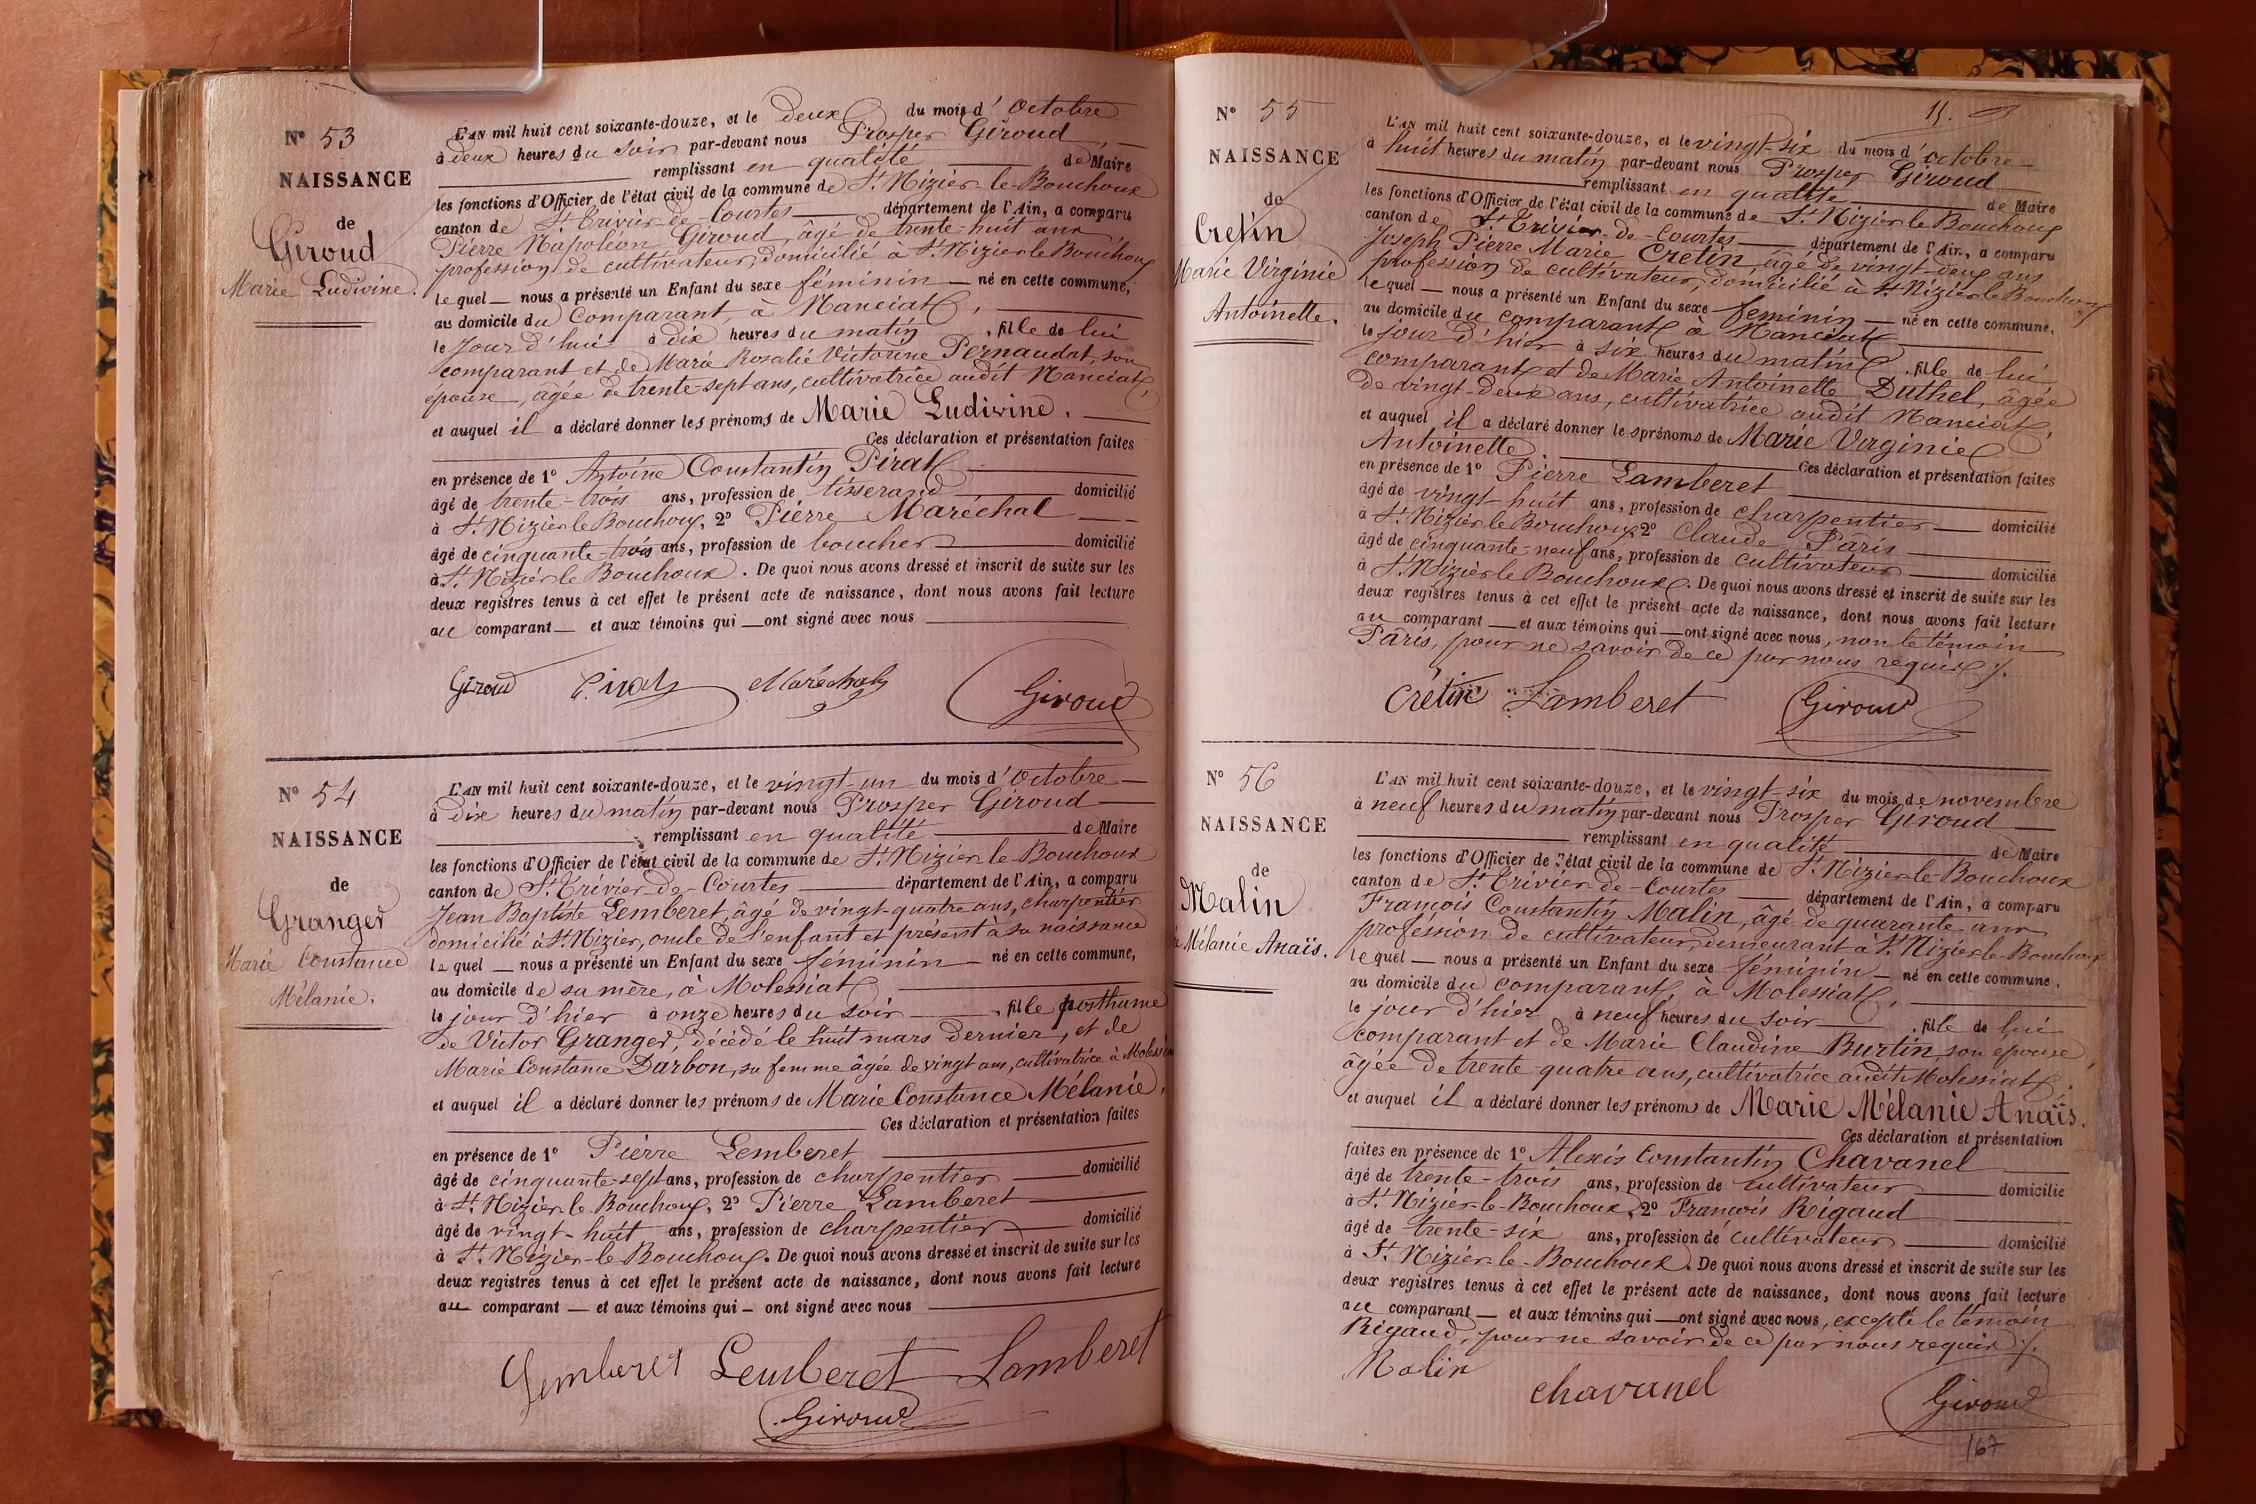 N° 53
NAISSANCE
de
Giroud
Marie Ludivine.
L'AN mil huit cent soixante-douze, et le deux du mois d'Octobre
à deux heures du soir par-devant nous Prosper Giroud
remplissant en qualité de Maire
les fonctions d'Officier de l'état civil de la commune de St Nizier-le-Bouchoux
canton de St Trivier-de-Courtes département de l'Ain, a comparu
Pierre Napoléon Giroud, âgé de trente-huit ans
profession de cultivateur, domicilié à St Nizier le Bouchoux
lequel nous a présenté un Enfant du sexe féminin né en cette commune,
au domicile du comparant, à Manciat,
le jour d'hui à dix heures du matin, fille de lui
comparant et de Marie Rosalie Victorine Pernaudat, son
épouse, âgée de trente-sept ans, cultivatrice audit Manciat,
et auquel il a déclaré donner les prénoms de Marie Ludivine.
Ces déclaration et présentation faites
en présence de 1° Antoine Constantin Pirat
âgé de trente-trois ans, profession de tisserand domicilié
à St Nizier le Bouchoux, 2° Pierre Maréchal
âgé de cinquante-trois ans, profession de boucher domicilié
à St Nizier le Bouchoux. De quoi nous avons dressé et inscrit de suite sur les
deux registres tenus à cet effet le présent acte de naissance, dont nous avons fait lecture
au comparant et aux témoins qui ont signé avec nous
Giroud Pirat Maréchal Giroud
N° 54
NAISSANCE
de
Granger
Marie Constance
Mélanie.
L'AN mil huit cent soixante-douze, et le vingt-un du mois d'Octobre
à dix heures du matin par-devant nous Prosper Giroud
remplissant en qualité de Maire
les fonctions d'Officier de l'état civil de la commune de St Nizier-le-Bouchoux
canton de St Trivier-de-Courtes département de l'Ain, a comparu
Jean Baptiste Lemberet, âgé de vingt-quatre ans, charpentier
domicilié à St Nizier, oncle de l'enfant et présent à sa naissance
lequel nous a présenté un Enfant du sexe féminin né en cette commune,
au domicile de sa mère, à Molessiat
le jour d'hier à onze heures du soir, fille posthume
de Victor Granger, décédé le huit mars dernier, et de
Marie Constance Darbon, sa femme âgée de vingt ans, cultivatrice à Molessiat
et auquel il a déclaré donner les prénoms de Marie Constance Mélanie.
Ces déclaration et présentation faites
en présence de 1° Pierre Lemberet
âgé de cinquante-sept ans, profession de charpentier domicilié
à St Nizier-le-Bouchoux, 2° Pierre Lamberet
âgé de vingt-huit ans, profession de charpentier domicilié
à St Nizier-le-Bouchoux. De quoi nous avons dressé et inscrit de suite sur les
deux registres tenus à cet effet le présent acte de naissance, dont nous avons fait lecture
au comparant et aux témoins qui ont signé avec nous
Lemberet Lemberet Lamberet
Giroud
15.
N° 55
NAISSANCE
de
Cretin
Marie Virginie
Antoinette.
L'AN mil huit cent soixante-douze, et le vingt-six du mois d'octobre
à huit heures du matin par-devant nous Prosper Giroud
remplissant en qualité de Maire
les fonctions d'Officier de l'état civil de la commune de St Nizier le Bouchoux
canton de St Trivier-de-Courtes département de l'Ain, a comparu
Joseph Pierre Marie Cretin, âgé de vingt-deux ans
profession de cultivateur, domicilié à St Nizier le Bouchoux
lequel nous a présenté un Enfant du sexe féminin né en cette commune,
au domicile du comparant à Manciat
le jour d'hier à six heures du matin, fille de lui
comparant et de Marie Antoinette Duthel, âgée
de vingt-deux ans, cultivatrice audit Manciat,
et auquel il a déclaré donner les prénoms de Marie Virginie
Antoinette. Ces déclaration et présentation faites
en présence de 1° Pierre Lamberet
âgé de vingt-huit ans, profession de charpentier domicilié
à St Nizier le Bouchoux 2° Claude Pâris
âgé de cinquante-neuf ans, profession de cultivateur domicilié
à St Nizier le Bouchoux. De quoi nous avons dressé et inscrit de suite sur les
deux registres tenus à cet effet le présent acte de naissance, dont nous avons fait lecture
au comparant et aux témoins qui ont signé avec nous, non le témoin
Pâris, pour ne savoir de ce par nous requis ./.
Crétin Lamberet Giroud
N° 56
NAISSANCE
de
Malin
Mélanie Anaïs.
L'AN mil huit cent soixante-douze, et le vingt-six du mois de novembre
à neuf heures du matin par-devant nous Prosper Giroud
remplissant en qualité de Maire
les fonctions d'Officier de l'état civil de la commune de St Nizier-le-Bouchoux
canton de St Trivier-de-Courtes département de l'Ain, a comparu
François Constantin Malin, âgé de quarante ans
profession de cultivateur, demeurant à St Nizier-le-Bouchoux
lequel nous a présenté un Enfant du sexe féminin né en cette commune,
au domicile du comparant, à Molessiat,
le jour d'hier à neuf heures du soir, fille de lui
comparant et de Marie Claudine Burtin, son épouse,
âgée de trente quatre ans, cultivatrice audit Molessiat.
et auquel il a déclaré donner les prénoms de Marie Mélanie Anaïs.
Ces déclaration et présentation
faites en présence de 1° Alexis Constantin Chavanel
âgé de trente-trois ans, profession de cultivateur domicilié
à St Nizier-le-Bouchoux, 2° François Rigaud
âgé de trente-six ans, profession de cultivateur domicilié
à St Nizier-le-Bouchoux. De quoi nous avons dressé et inscrit de suite sur les
deux registres tenus à cet effet le présent acte de naissance, dont nous avons fait lecture
au comparant et aux témoins qui ont signé avec nous, excepté le témoin
Rigaud, pour ne savoir de ce par nous requis ./.
Malin chavanel Giroud
167